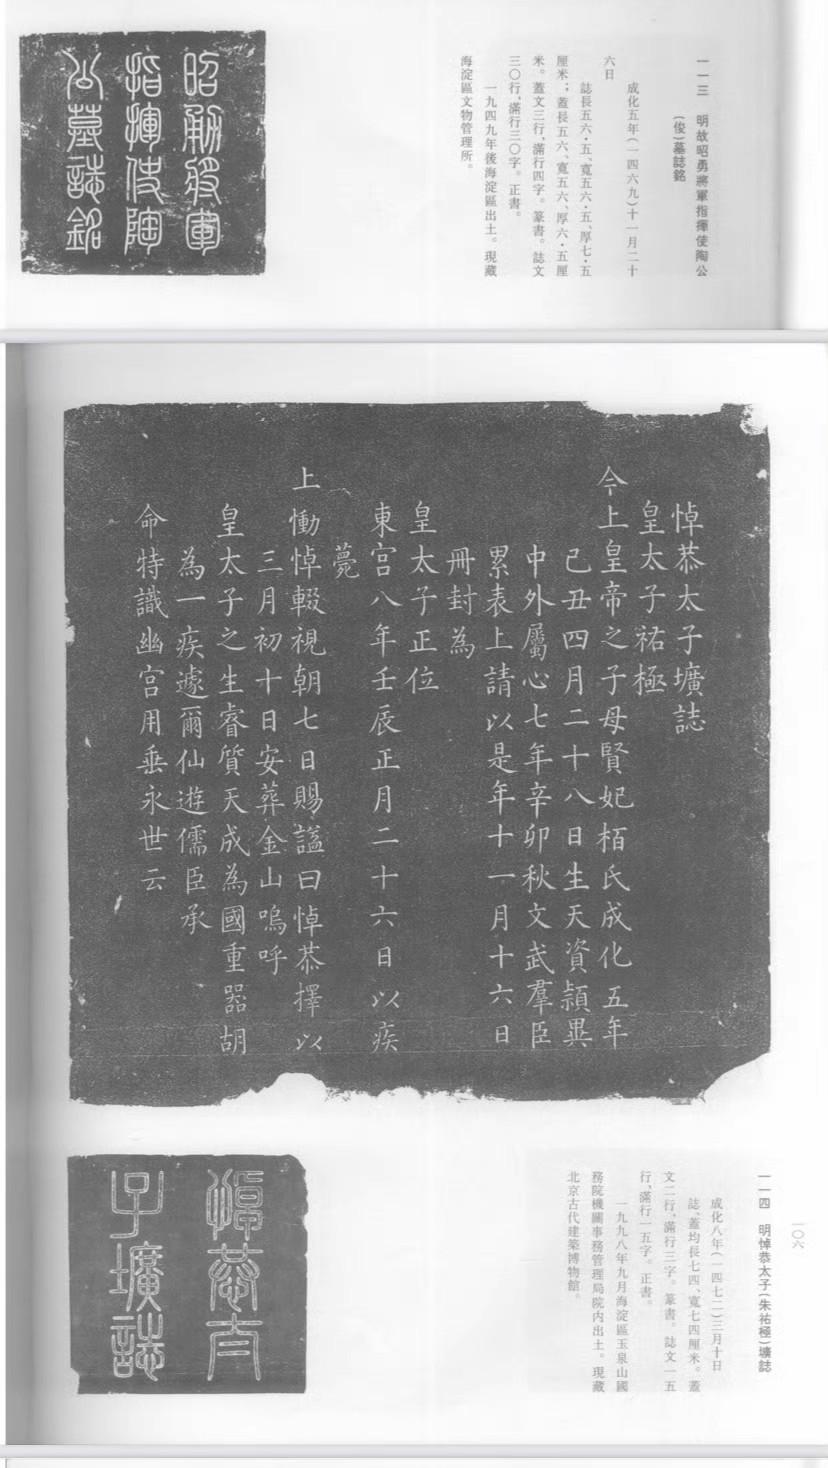 一一三　明故昭勇將軍指揮使陶公
（俊）墓誌銘
成化五年（一四六九）十一月二十
六日
誌長五六·五、寬五六·五、厚七·五
厘米；蓋長五六、寬五六、厚六·五厘
米。蓋文三行，滿行四字。篆書。誌文
三〇行，滿行三〇字。正書。
一九四九年後海淀區出土。現藏
海淀區文物管理所。
昭勇將軍
指揮使陶
公墓誌銘
悼恭太子壙誌
皇太子祐極
今上皇帝之子母賢妃栢氏成化五年
己丑四月二十八日生天資穎異
中外屬心七年辛卯秋文武羣臣
累表上請以是年十一月十六日
冊封為
皇太子正位
東宮八年壬辰正月二十六日以疾
薨
上慟悼輟視朝七日賜謚曰悼恭擇以
三月初十日安葬金山嗚呼
皇太子之生睿質天成為國重器胡
為一疾遽爾仙遊儒臣承
命特識幽宮用垂永世云
一〇六
一一四　明悼恭太子（朱祐極）壙誌
成化八年（一四七二）三月十日
誌、蓋均長七四、寬七四厘米。蓋
文二行，滿行三字。篆書。誌文一五
行，滿行一五字。正書。
一九九八年九月海淀區玉泉山國
務院機關事務管理局院内出土。現藏
北京古代建築博物館。
悼恭太
子壙誌